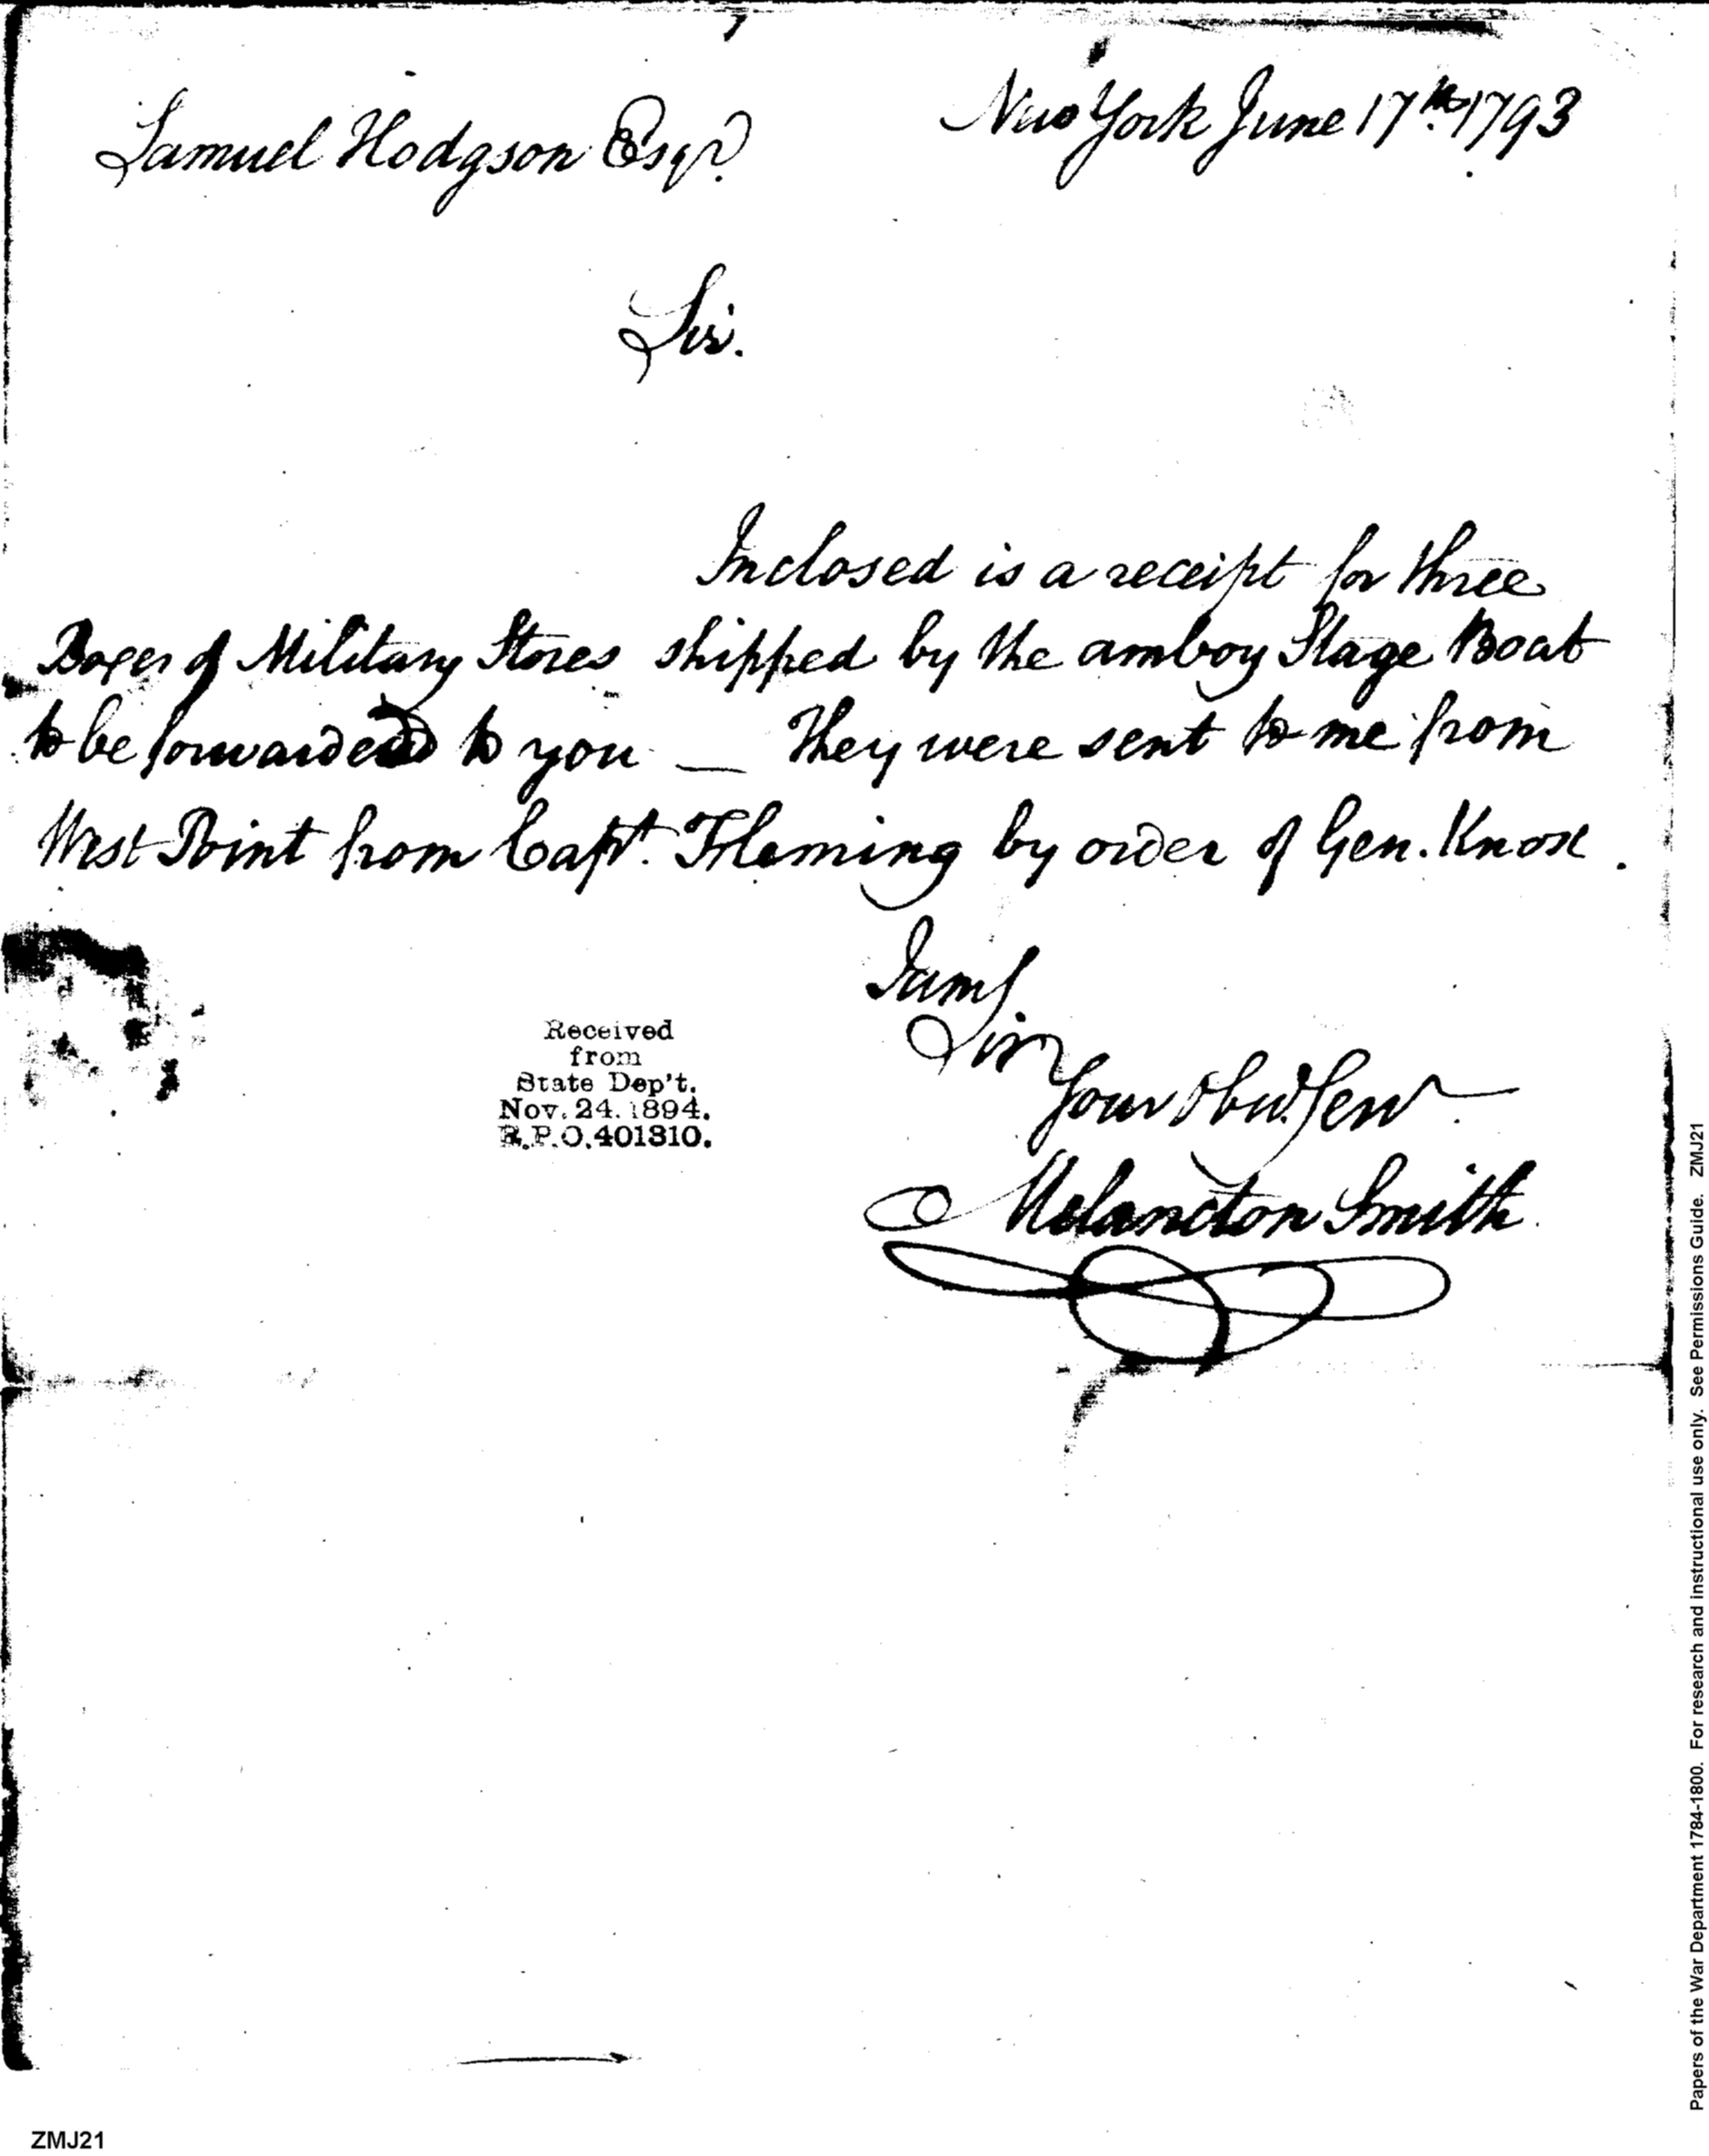 New York June 17th 1793
Samuel Hodgson Esqr.
Sir.
Inclosed is a receipt for three
Boxes of Military Stores shipped by the amboy Stage Boat
to be forwarded to you — They were sent to me from
West Point from Capt. Fleming by order of Gen. Knox.
I am
Sir
Your Obd. Serv
Melancton Smith
Received
from
State Dep't.
Nov. 24. 1894.
R.P.O. 401310.
Papers of the War Department 1784-1800. For research and instructional use only. See Permissions Guide. ZMJ21
ZMJ21